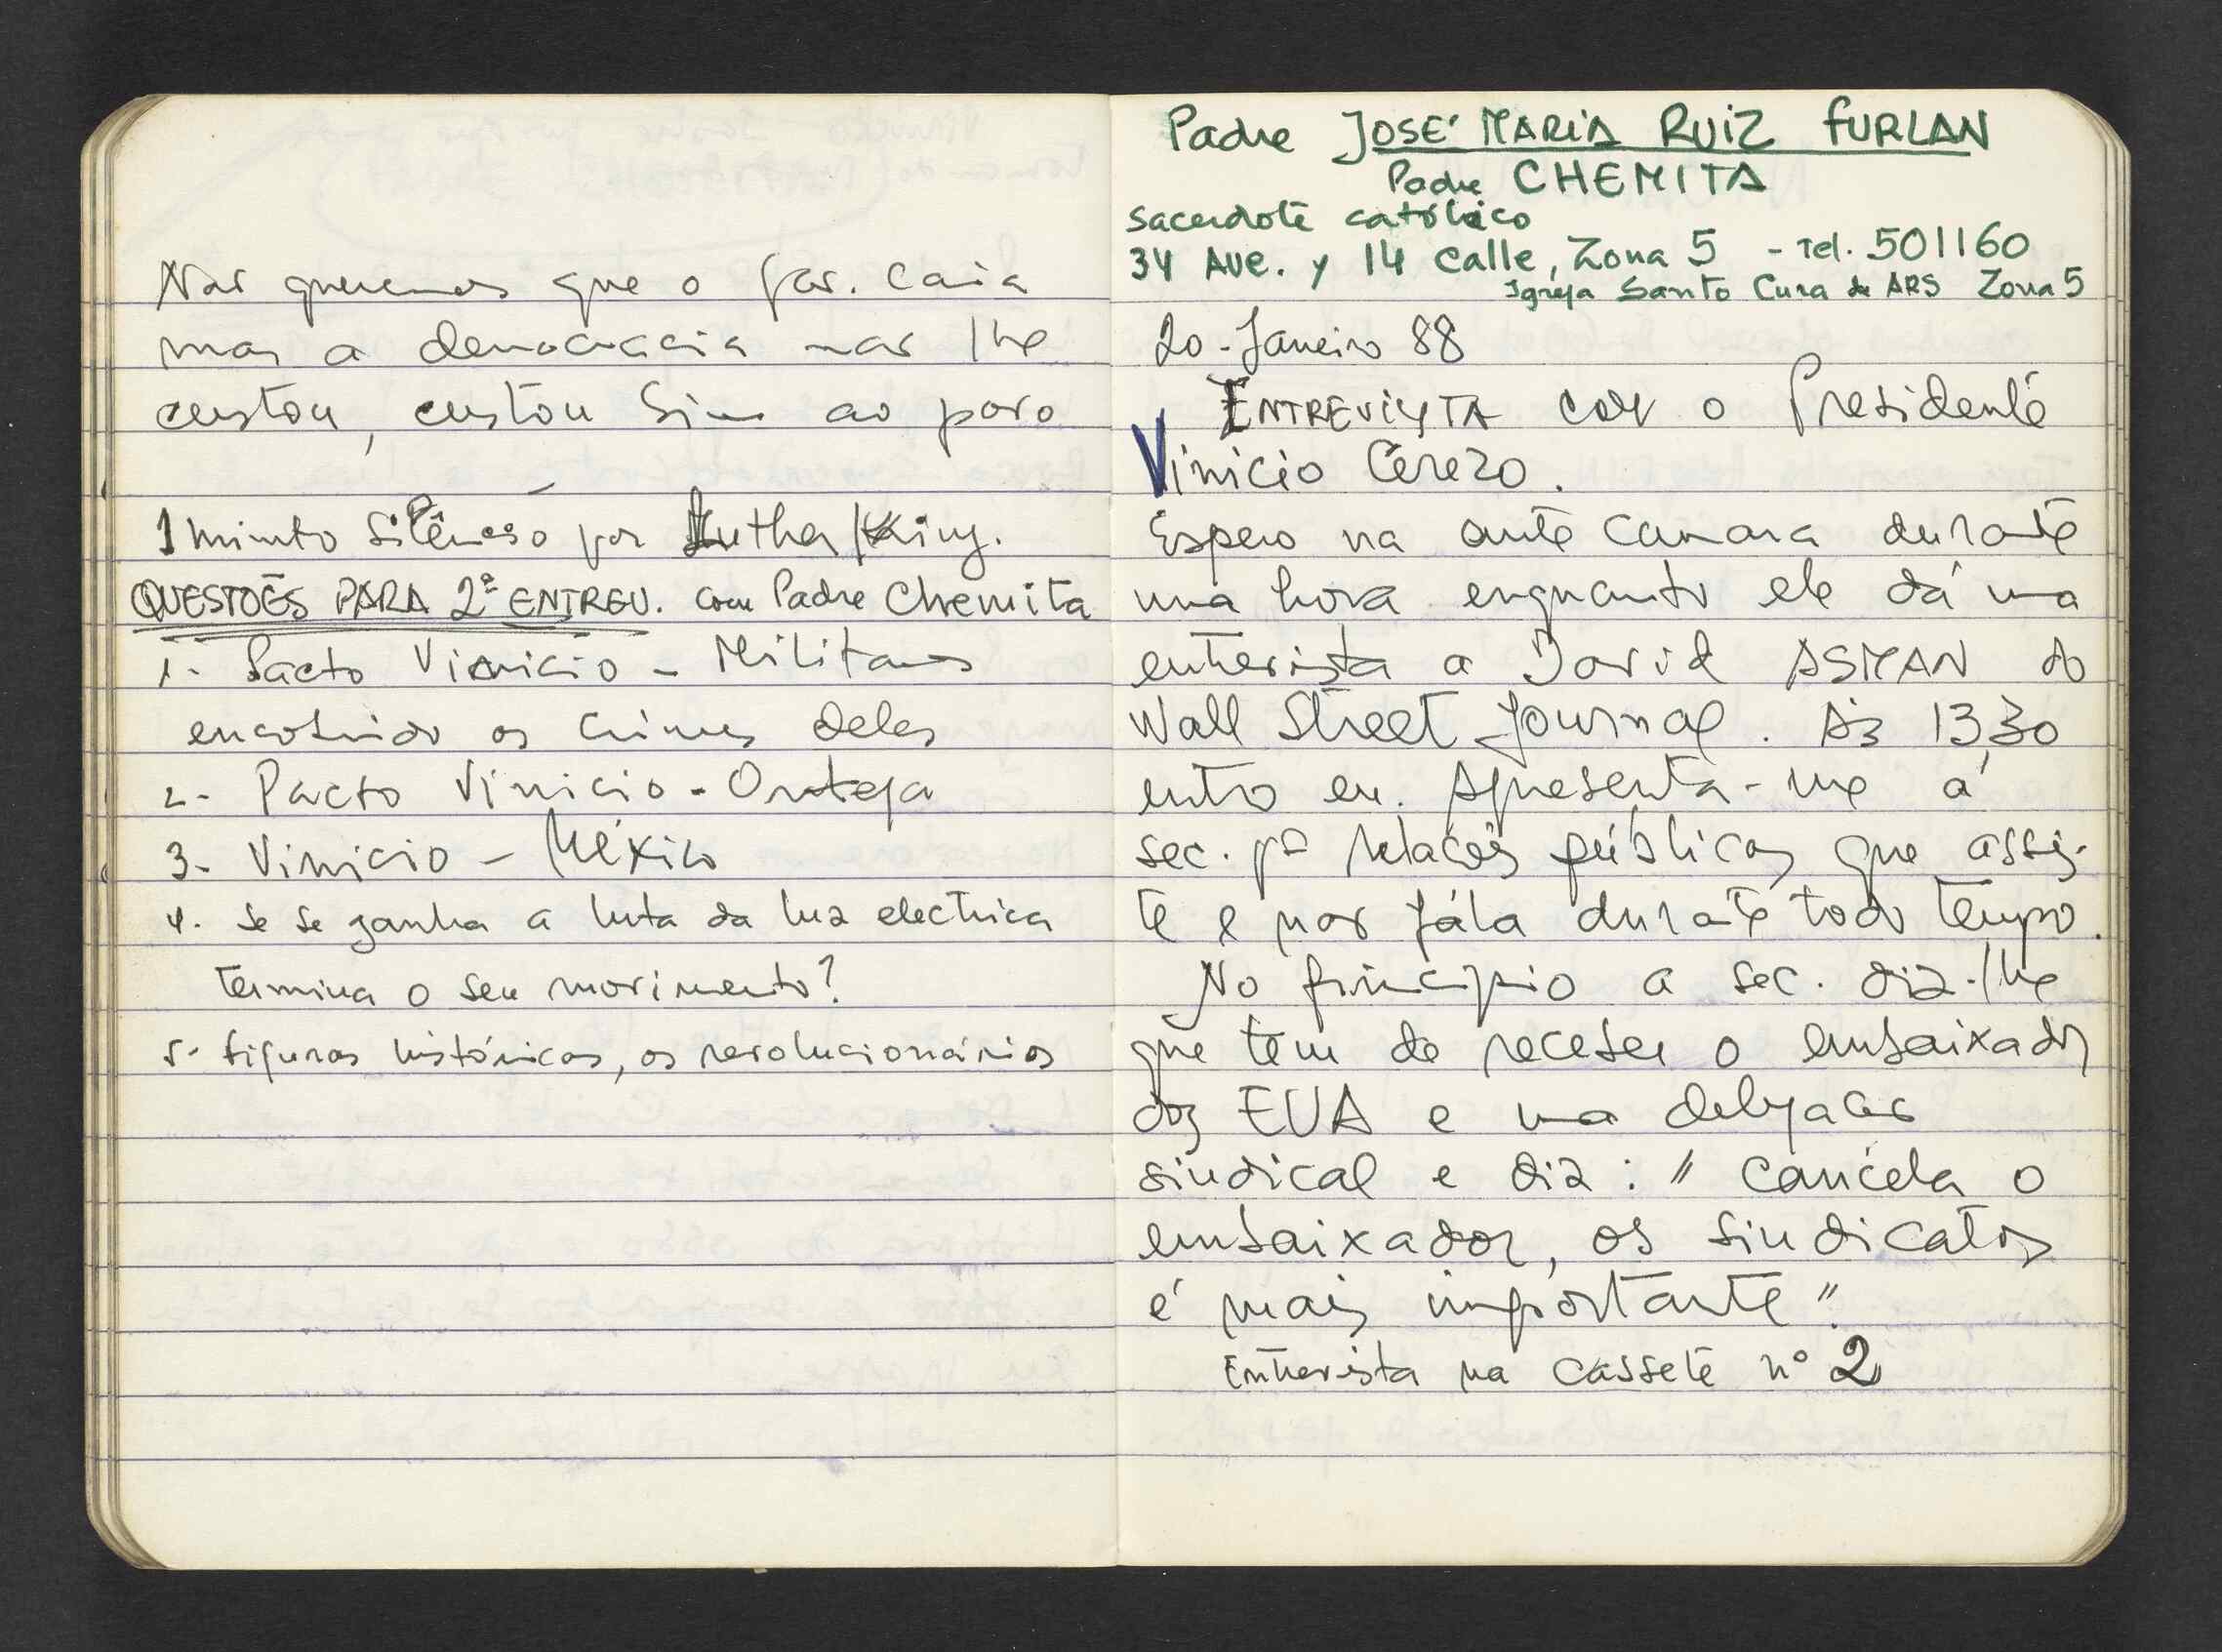 Nao queremos que o gov. caia
mas a democracia nao lhe
custou, custou sim ao povo
1 minuto silêncio por Luther King.
QUESTOẼS PARA 2ª ENTREV. com Padre Chemita
1- Pacto Vinicio - Militares
encobrindo os crimes deles
2- Pacto Vinicio - Ortega
3- Vinicio - México
4. Se se ganha a luta da luz electrica
termina o seu movimento?
5- figuras históricas, os revolucionários
Padre JOSE' MARIA RUIZ FURLAN
Padre CHEMITA
Sacerdote católico
34 AVE. y 14 Calle, Zona 5 - Tel. 501160
Igreja Santo Cura de ARS Zona 5
20-Janeiro 88
ENTREVISTA com o Presidente
Vinicio Cerezo.
Espero na ante camara durante
uma hora enquanto ele dá uma
entrevista a David ASMAN do
Wall Street Journal. Às 13,30
entro eu. Apresenta-me à
sec. pª relações públicas que assis-
te e nao fala durante todo tempo.
No principio a sec. diz-lhe
que tem de receber o embaixador
dos EUA e uma delegacao
sindical e diz: "Cancela o
embaixador, os sindicatos
é mais importante"
Entrevista na cassete nº 2